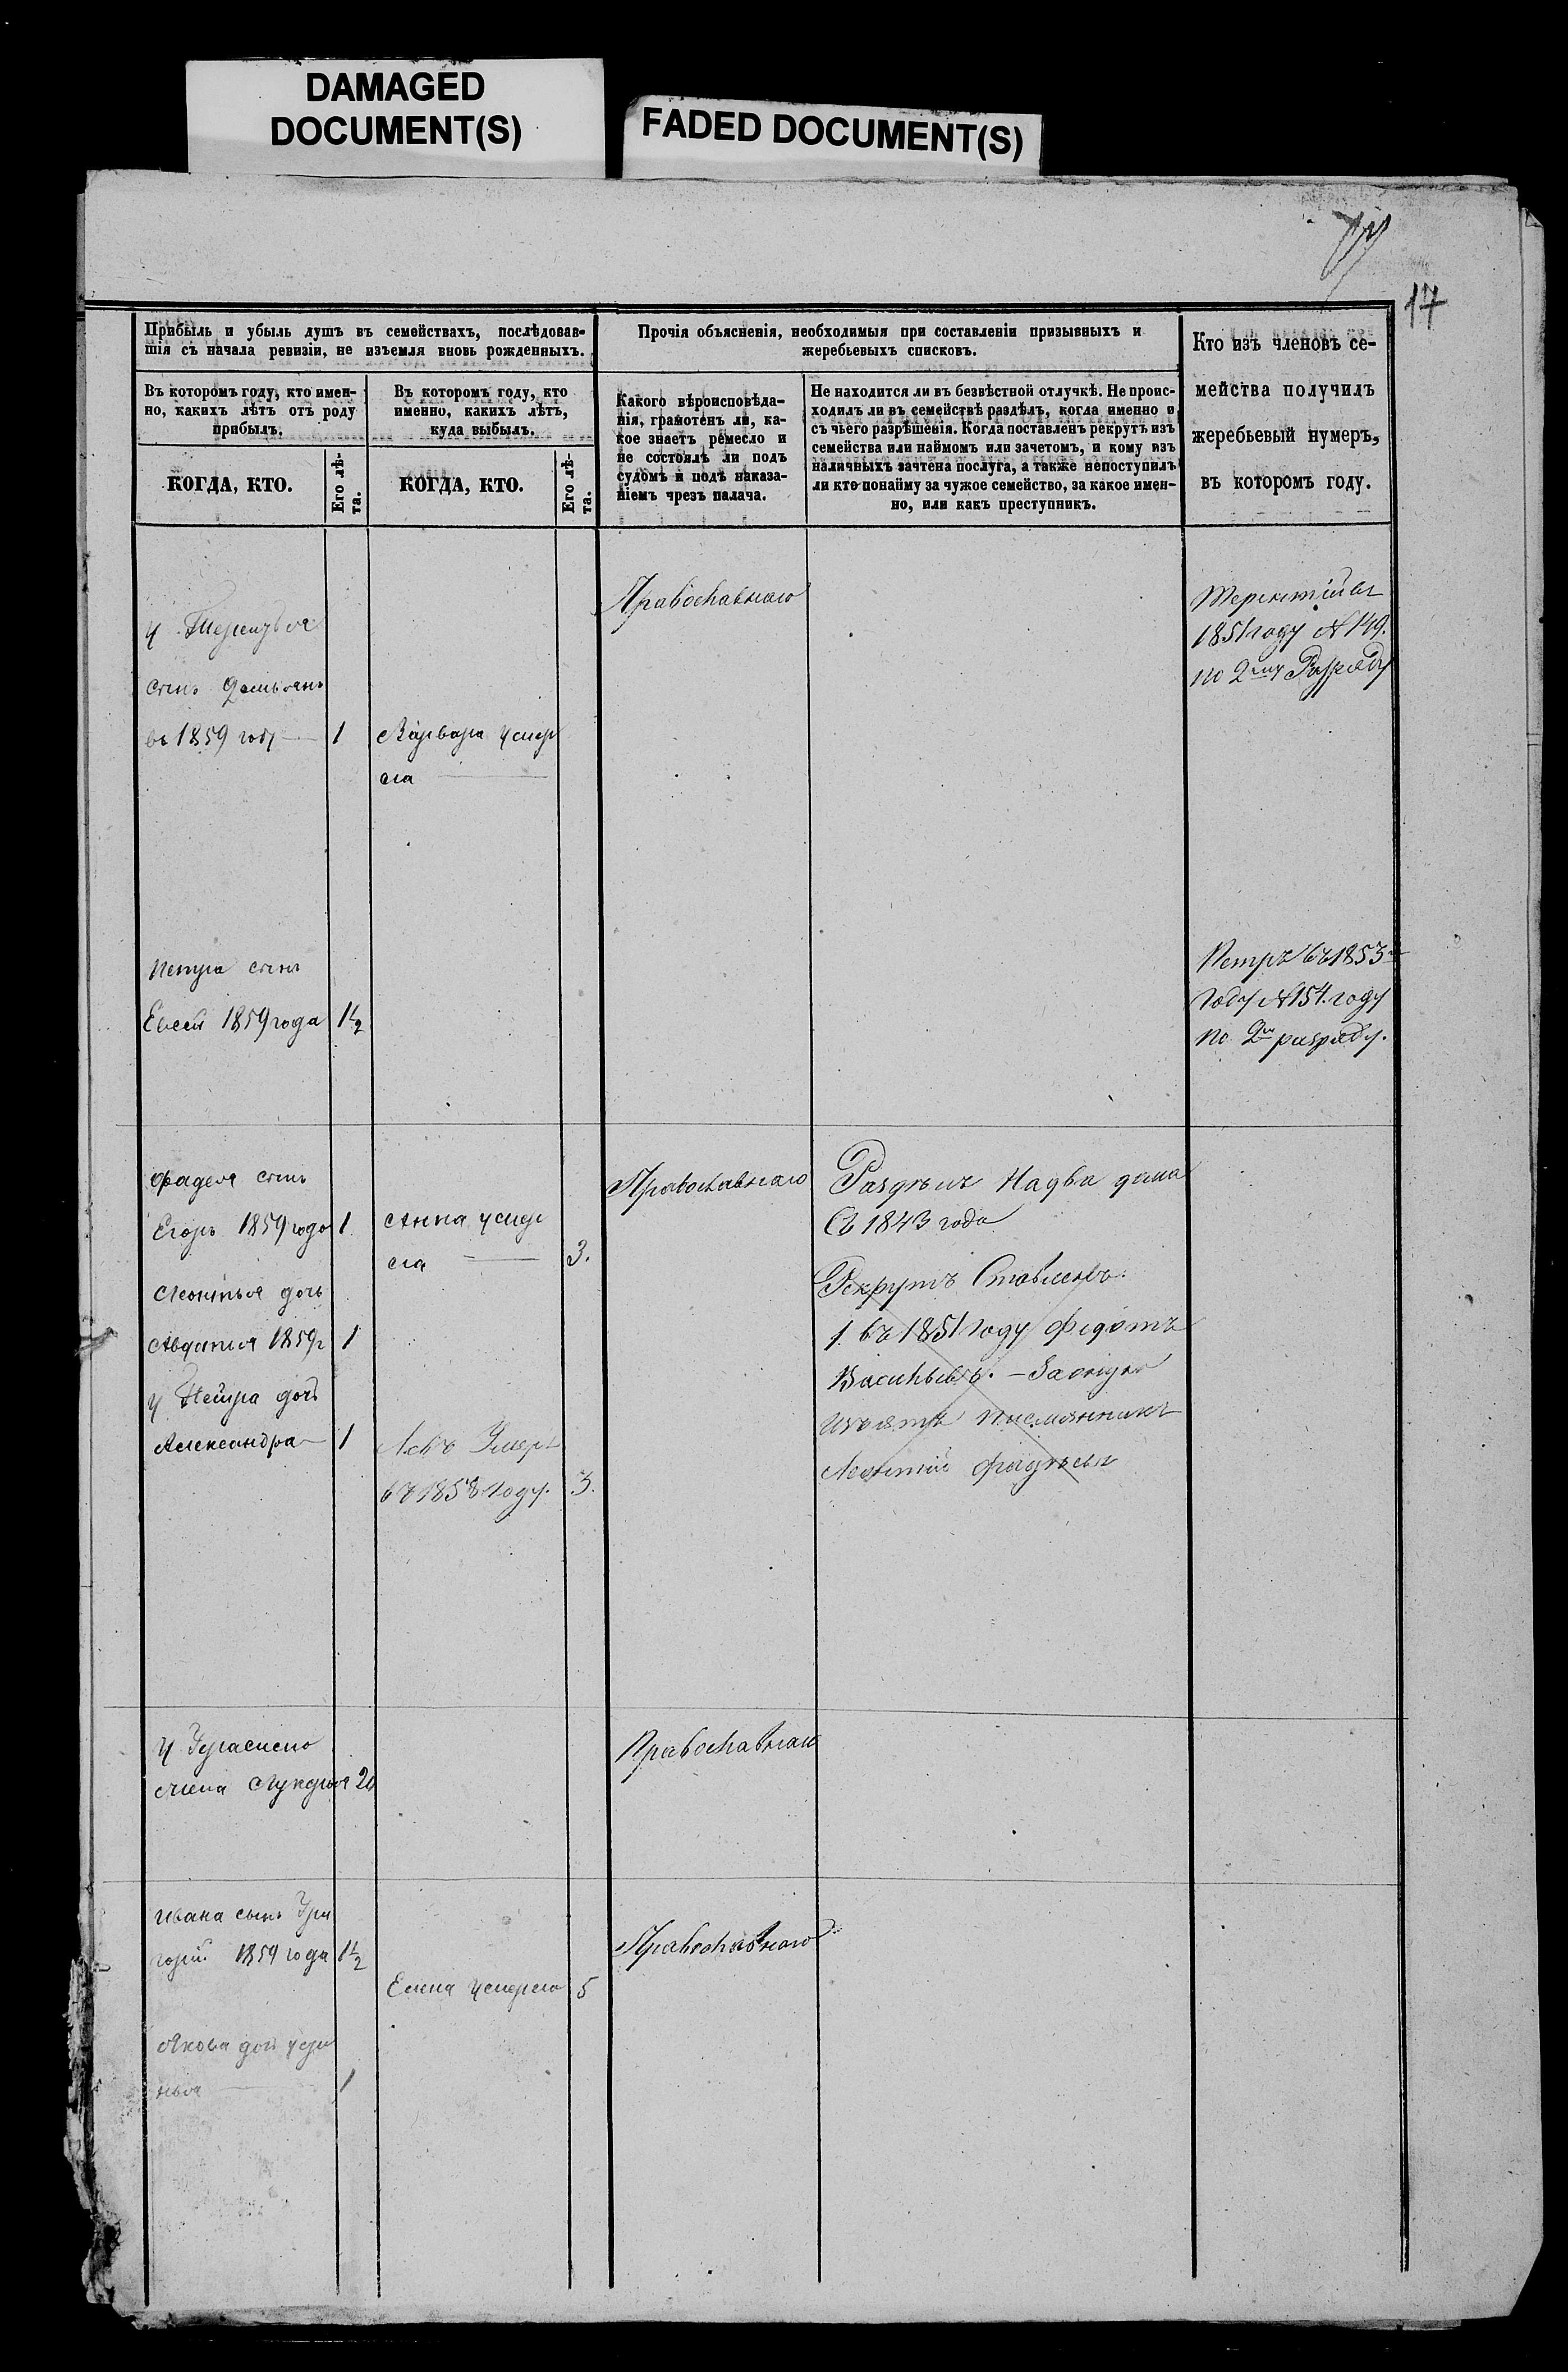 DAMAGED
DOCUMENT(S)
FADED DOCUMENT(S)
17
Прибыль и убыль душъ въ семействахъ, послѣдовав-
шія съ начала ревизіи, не изъемля вновь рожденныхъ.
Въ которомъ году, кто имен-
но, какихъ лѣтъ отъ роду
прибылъ.
КОГДА, КТО.
Его лѣ-
та.
Въ которомъ году, кто
именно, какихъ лѣтъ,
куда выбылъ.
КОГДА, КТО.
Его лѣ-
та.
Прочія объясненія, необходимыя при составленіи призывныхъ и
жеребьевыхъ списковъ.
Какого вѣроисповѣда-
нія, грамотенъ ли, ка-
кое знаетъ ремесло и
не состоялъ ли подъ
судомъ и подъ наказа-
ніемъ чрезъ палача.
Не находится ли въ безвѣстной отлучкѣ. Не проис-
ходилъ ли въ семействѣ раздѣлъ, когда именно и
съ чьего разрѣшенія. Когда поставленъ рекрутъ изъ
семейства или наймомъ или зачетомъ, и кому изъ
наличныхъ зачтена послуга, а также непоступилъ
ли кто понайму за чужое семейство, за какое имен-
но, или какъ преступникъ.
Кто изъ членовъ се-
мейства получилъ
жеребьевый нумеръ,
въ которомъ году.
у Терентья
сынъ Демьянъ
въ 1859 году 1
Варвара умер
ла
Православнаго
Терентій въ
1851 году № 149.
по 2му Разряду
Петра сынъ
Евсей 1859 года 1½
Петръ въ 1853
Году № 154. году
по 2му разряду.
Фадея сынъ
Егоръ 1859 года 1
Леонтья дочь
Авдотья 1859г 1
у Петра дочь
Александра 1
Анна умер
ла 3.
Левъ Умеръ
въ 1858 Году. 3.
Православнаго
Раздѣлъ На два дома
Съ 1843 года
Рекрутъ Ставленъ.
1. въ 1851 Году Федотъ
Васильевъ. – За
племянникъ
Леонтій Фадѣевъ
у Герасима
жена Лукерья 20
Православнаго
Ивана сынъ Гри
горій 1859 года 1½
Елена умерла 5
Якова дочь
1
Православнаго